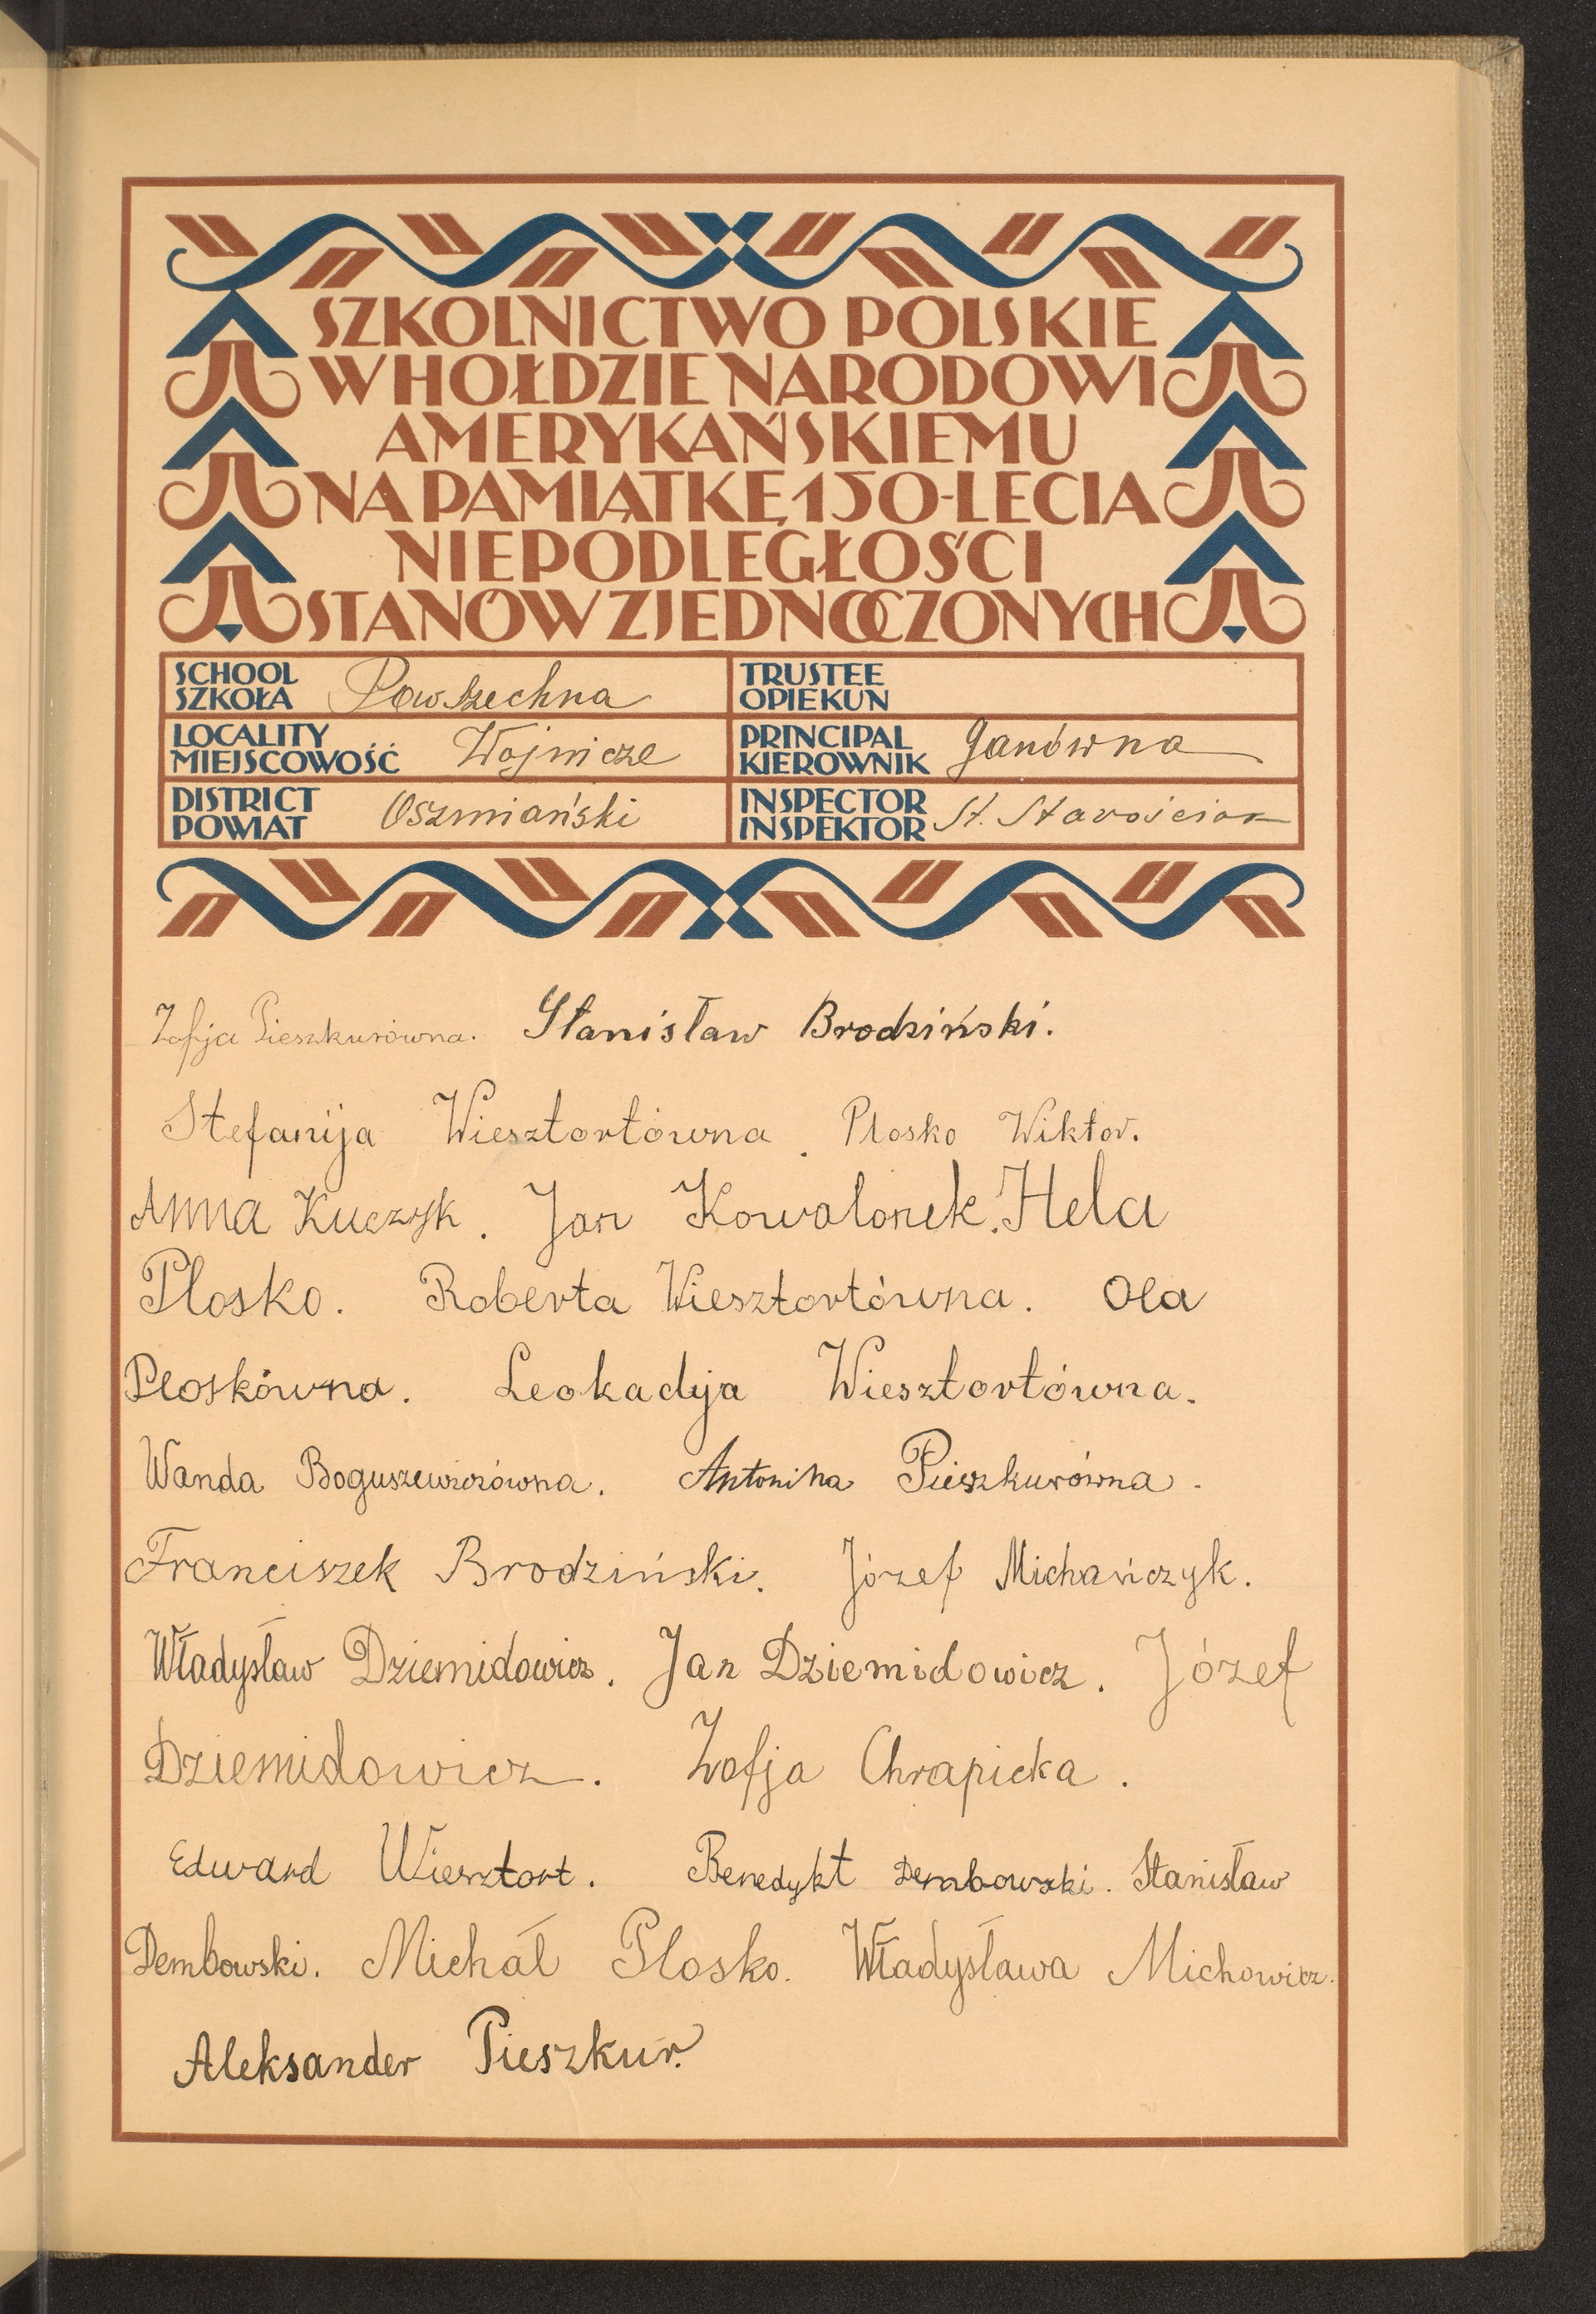 SZKOLNICTWO POLSKIE
W HOŁDZIE NARODOWI
AMERYKAŃSKIEMU
NA PAMIĄTKĘ 150-LECIA
NIEPODLEGŁOŚCI
STANÓW ZJEDNOCZONYCH
SCHOOL
SZKOŁA Powszechna
TRUSTEE
OPIEKUN
LOCALITY
MIEJSCOWOŚĆ Wojnicze
PRINCIPAL
KIEROWNIK Janówna
DISTRICT
POWIAT Oszmiański
INSPECTOR
INSPEKTOR St. Starościak
Zofja Pieszkurówna. Stanisław Brodziński.
Stefanija Wiesztortówna. Płosko Wiktor.
Anna Kuczyk. Jan Kowalonek. Hela
Płosko. Roberta Wiesztortówna. Ola
Płoskówna. Leokadija Wiesztortówna.
Wanda Boguszewiczówna. Antonina Pieszkurówna.
Franciszek Brodziński. Józef Michańczyk.
Władysław Dziemidowicz. Jan Dziemidowicz. Józef
Dziemidowicz. Zofja Chrapicka.
Edward Wiesztort. Benedykt Dembowski. Stanisław
Dembowski. Michał Płosko. Władysława Michowicz.
Aleksander Pieszkur.